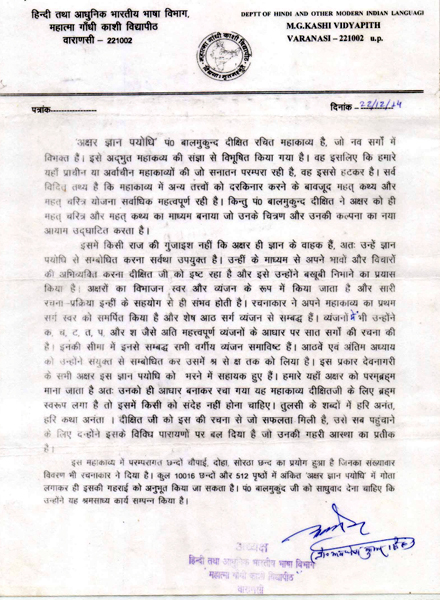 हिन्दी तथा आधुनिक भारतीय भाषा विभाग,
महात्मा गाँधी काशी विद्यापीठ
वाराणसी - 221002
DEPTT OF HINDI AND OTHER MODERN INDIAN LANGUAGI
M.G.KASHI VIDYAPITH
VARANASI - 221002 u.p.
पत्रांक
दिनांक 22/12/14
'अक्षर ज्ञान पयोधि' पं० बालमुकुन्द दीक्षित रचित महाकाव्य है, जो नव सर्गो में
विभक्त है। इसे अद्भुत महाकव्य की संज्ञा से विभूषित किया गया है। वह इसलिए कि हमारे
यहाँ प्राचीन या अर्वाचीन महाकाव्यों की जो सनातन परम्परा रही है, वह इससे हटकर है। सर्व
विदित तथ्य है कि महाकाव्य में अन्य तत्त्वों को दरकिनार करने के बावजूद महत् कथ्य और
महत् चरित्र योजना सर्वाधिक महत्वपूर्ण रही है। किन्तु पं० बालमुकुन्द दीक्षित ने अक्षर को ही
महत् चरित्र और महत् कथ्य का माध्यम बनाया जो उनके चित्रण और उनकी कल्पना का नया
आयाम उद्घाटित करता है।
इसमे किसी राज की गुंजाइश नहीं कि अक्षर ही ज्ञान के वाहक हैं, अतः उन्हें ज्ञान
पयोधि से सम्बोधित करना सर्वथा उपयुक्त है। उन्हीं के माध्यम से अपने भावो और विचारों
की अभिव्यक्ति करना दीक्षित जी को इष्ट रहा है और इसे उन्होंने बखूबी निभाने का प्रयास
किया है। अक्षरों का विभाजन स्वर और व्यंजन के रूप में किया जाता है और सारी
रचना-प्रक्रिया इन्हीं के सहयोग से ही संभव होती है। रचनाकार ने अपने महाकाव्य का प्रथम
सर्ग स्वर को समर्पित किया है और शेष आठ सर्ग व्यंजन से सम्बद्ध हैं। व्यंजनों में भी उन्होंने
क, च, ट, त, प, और श जैसे अति महत्त्वपूर्ण व्यंजनों के आधार पर सात सर्गो की रचना की
है। इनकी सीमा में इनसे सम्बद्ध सभी वर्गीय व्यंजन समाविष्ट हैं। आठवें एवं अंतिम अध्याय
को उन्होंने संयुक्त से सम्बोधित कर उसमें श्र से क्ष तक को लिया है। इस प्रकार देवनागरी
के सभी अक्षर इस ज्ञान पयोधि को भरने में सहायक हुए हैं। हमारे यहाँ अक्षर को परम्ब्रह्म
माना जाता है अतः उनको ही आधार बनाकर रचा गया यह महाकाव्य दीक्षितजी के लिए ब्रह्म
स्वरूप लगा है तो इसमें किसी को संदेह नहीं होना चाहिए। तुलसी के शब्दों में हरि अनंत,
हरि कथा अनंता । दीक्षित जी को इस की रचना से जो सफलता मिली है, उसे सब पहुंचाने
के लिए उन्होंने इसके विविध पारायणों पर बल दिया है जो उनकी गहरी आस्था का प्रतीक
है।
इस महाकाव्य में परम्परागत छन्दों चौपाई, दोहा, सोरठा छन्द का प्रयोग हुआ है जिनका संख्यावार
विवरण भी रचनाकार ने दिया है। कुल 10016 छन्दों और 512 पृष्ठों में अंकित 'अक्षर ज्ञान पयोधि' में गोता
लगाकर ही इसकी गहराई को अनुभूत किया जा सकता है। पं० बालमुकुंद जी को साधुवाद देना चाहिए कि
उन्होंने यह श्रमसाध्य कार्य सम्पन्न किया है।
अध्यक्ष
हिन्दी तथा आधुनिक भारतीय भाषा विभाग
महात्मा गांधी काशी विद्यापीठ
वाराणसी